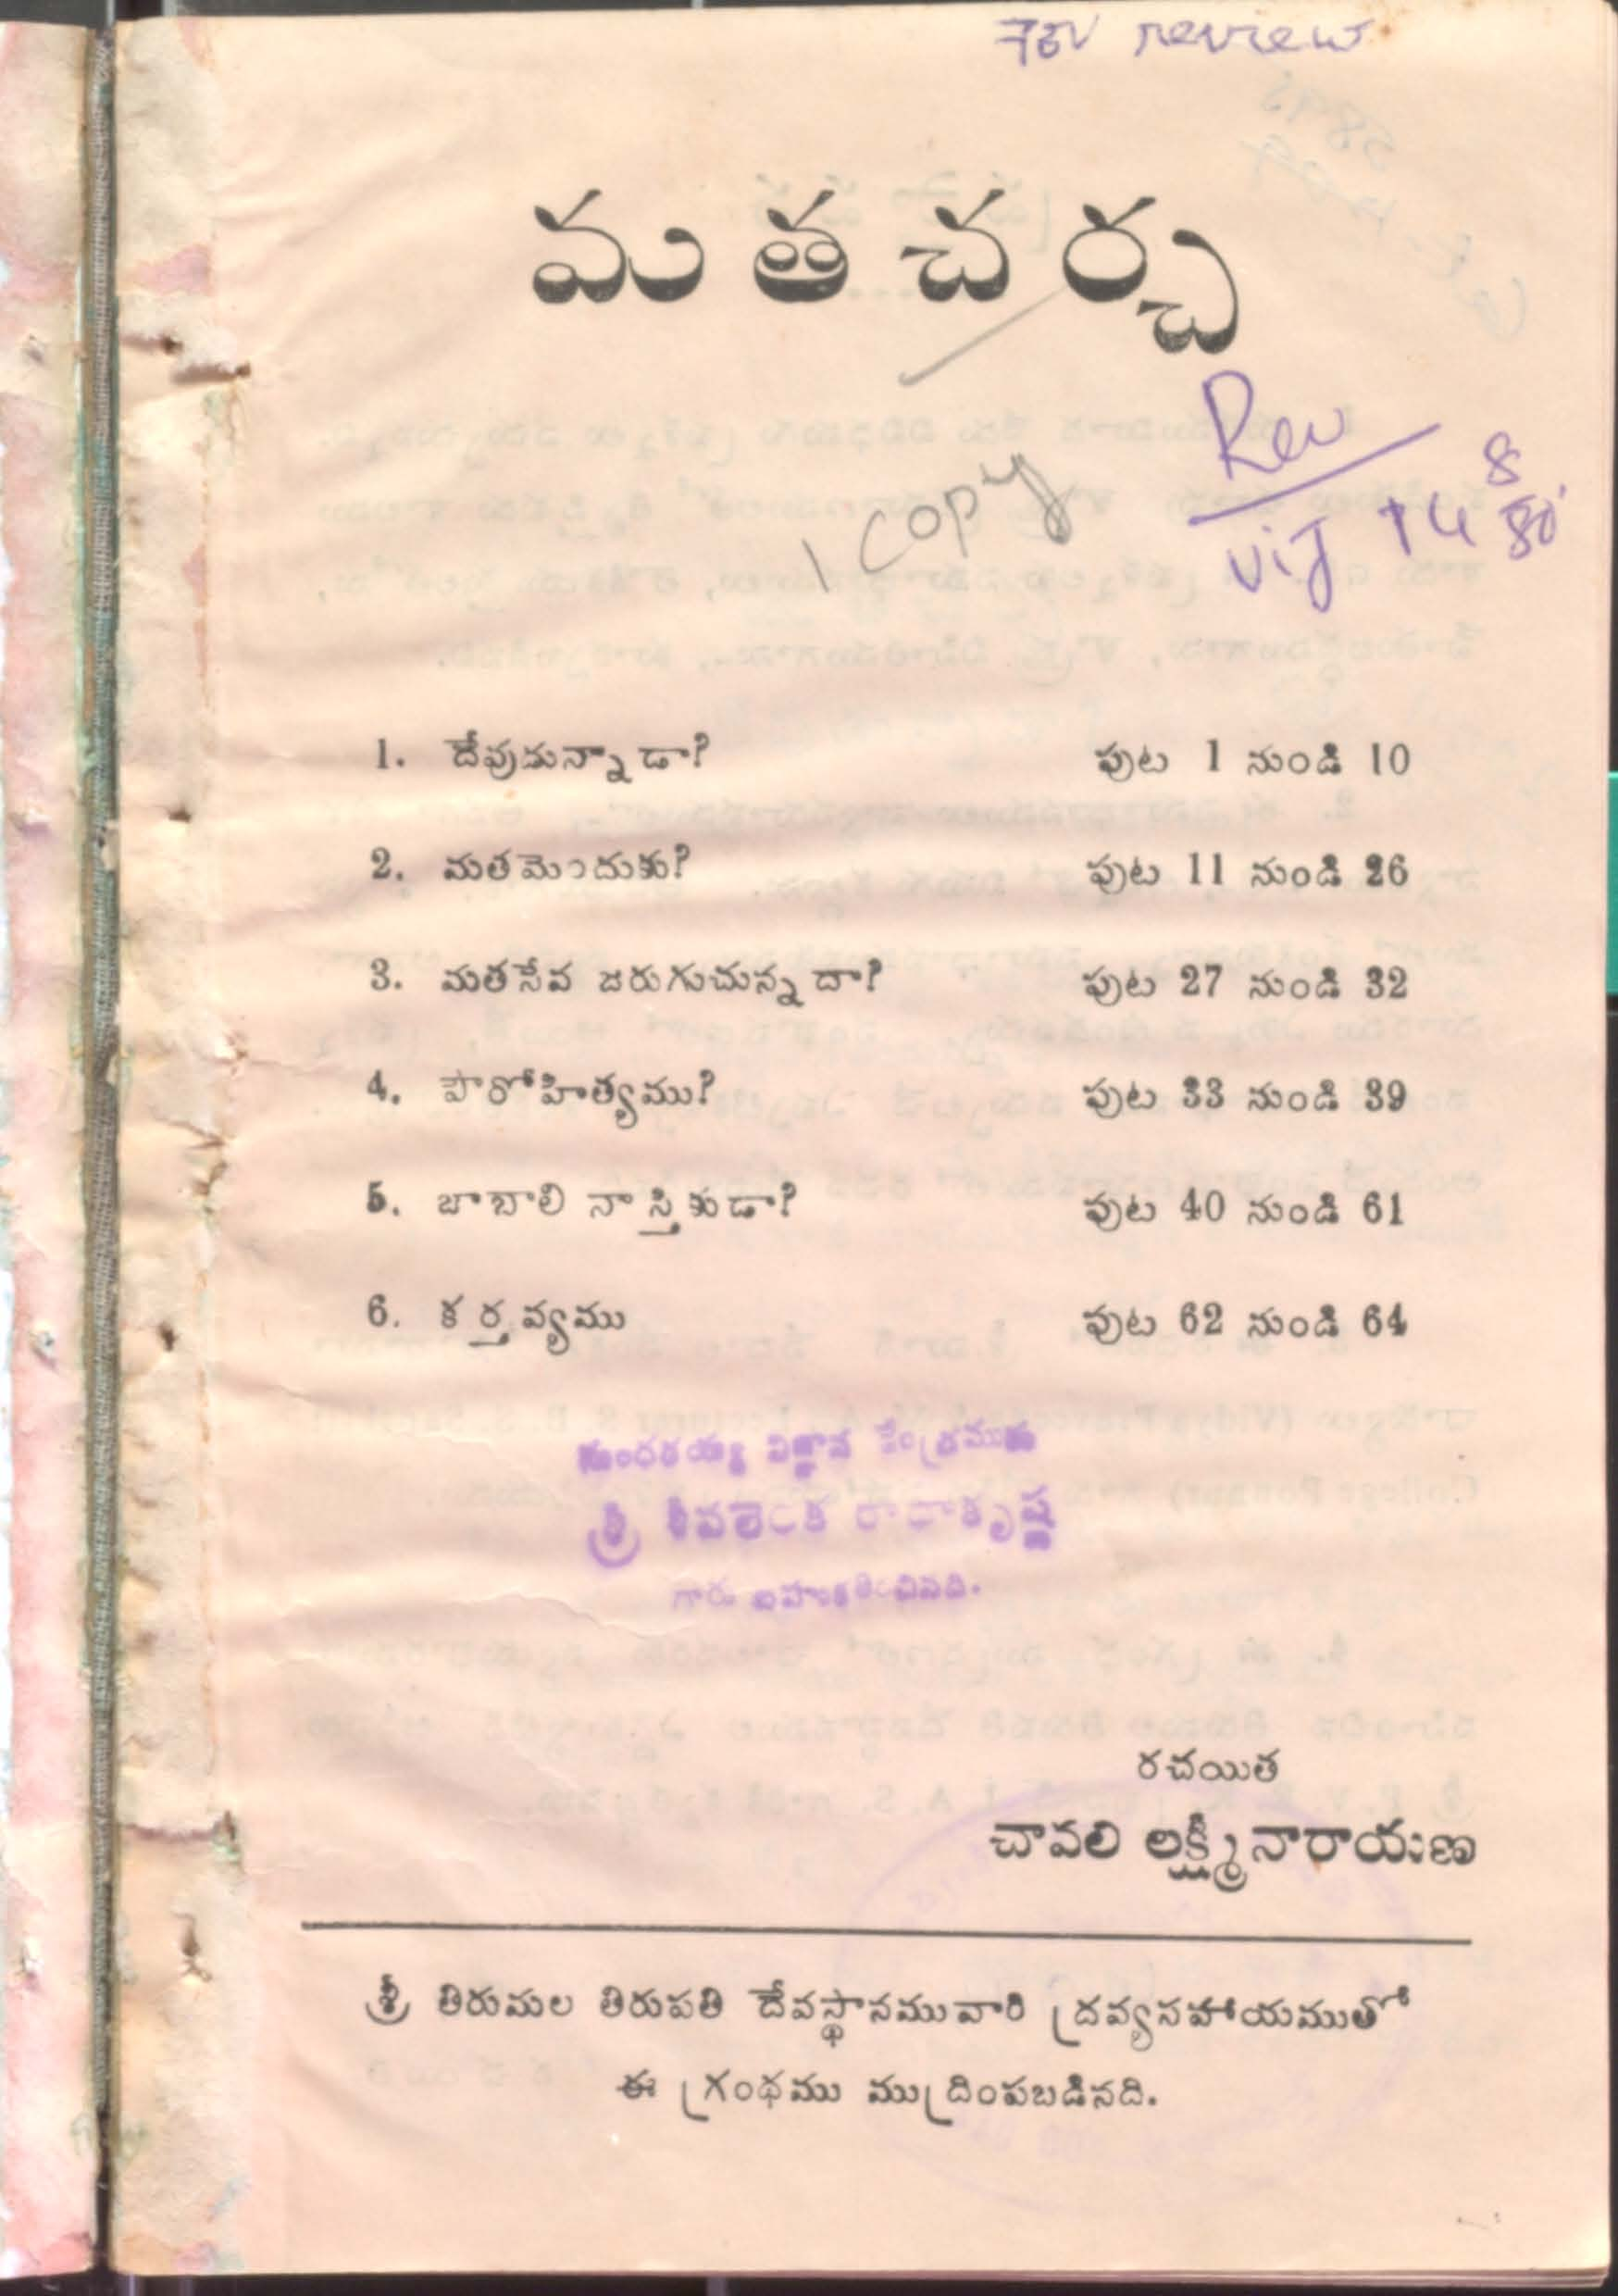 For review
మతచర్చ
Rev
1 copy
Vij 14 8 80
1. దేవుడున్నాడా? పుట 1 నుండి 10
2. మతమెందుకు? పుట 11 నుండి 26
3. మతసేవ జరుగుచున్నదా? పుట 27 నుండి 32
4. పౌరోహిత్యము? పుట 33 నుండి 39
5. జాబాలి నాస్తికుడా? పుట 40 నుండి 61
6. కర్తవ్యము పుట 62 నుండి 64
సుందరయ్య విజ్ఞాన కేంద్రమునకు
శ్రీ శివలెంక రాధాకృష్ణ
గారు బహుకరించినది.
రచయిత
చావలి లక్ష్మీనారాయణ
శ్రీ తిరుమల తిరుపతి దేవస్థానమువారి ద్రవ్యసహాయముతో
ఈ గ్రంథము ముద్రింపబడినది.